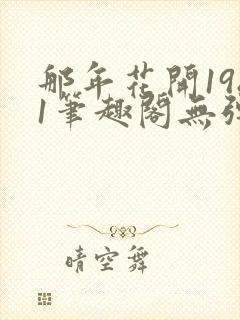 那年花開19
1筆趣閣無彈
晴空舞